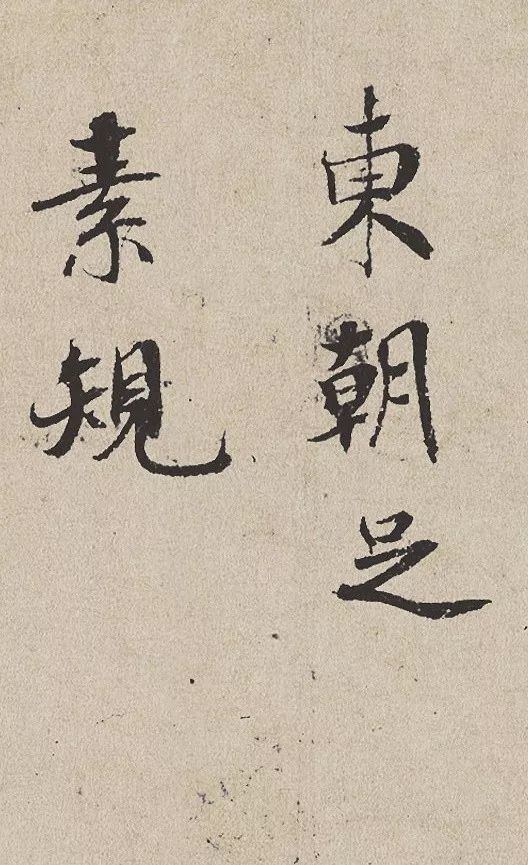 東朝足
素規